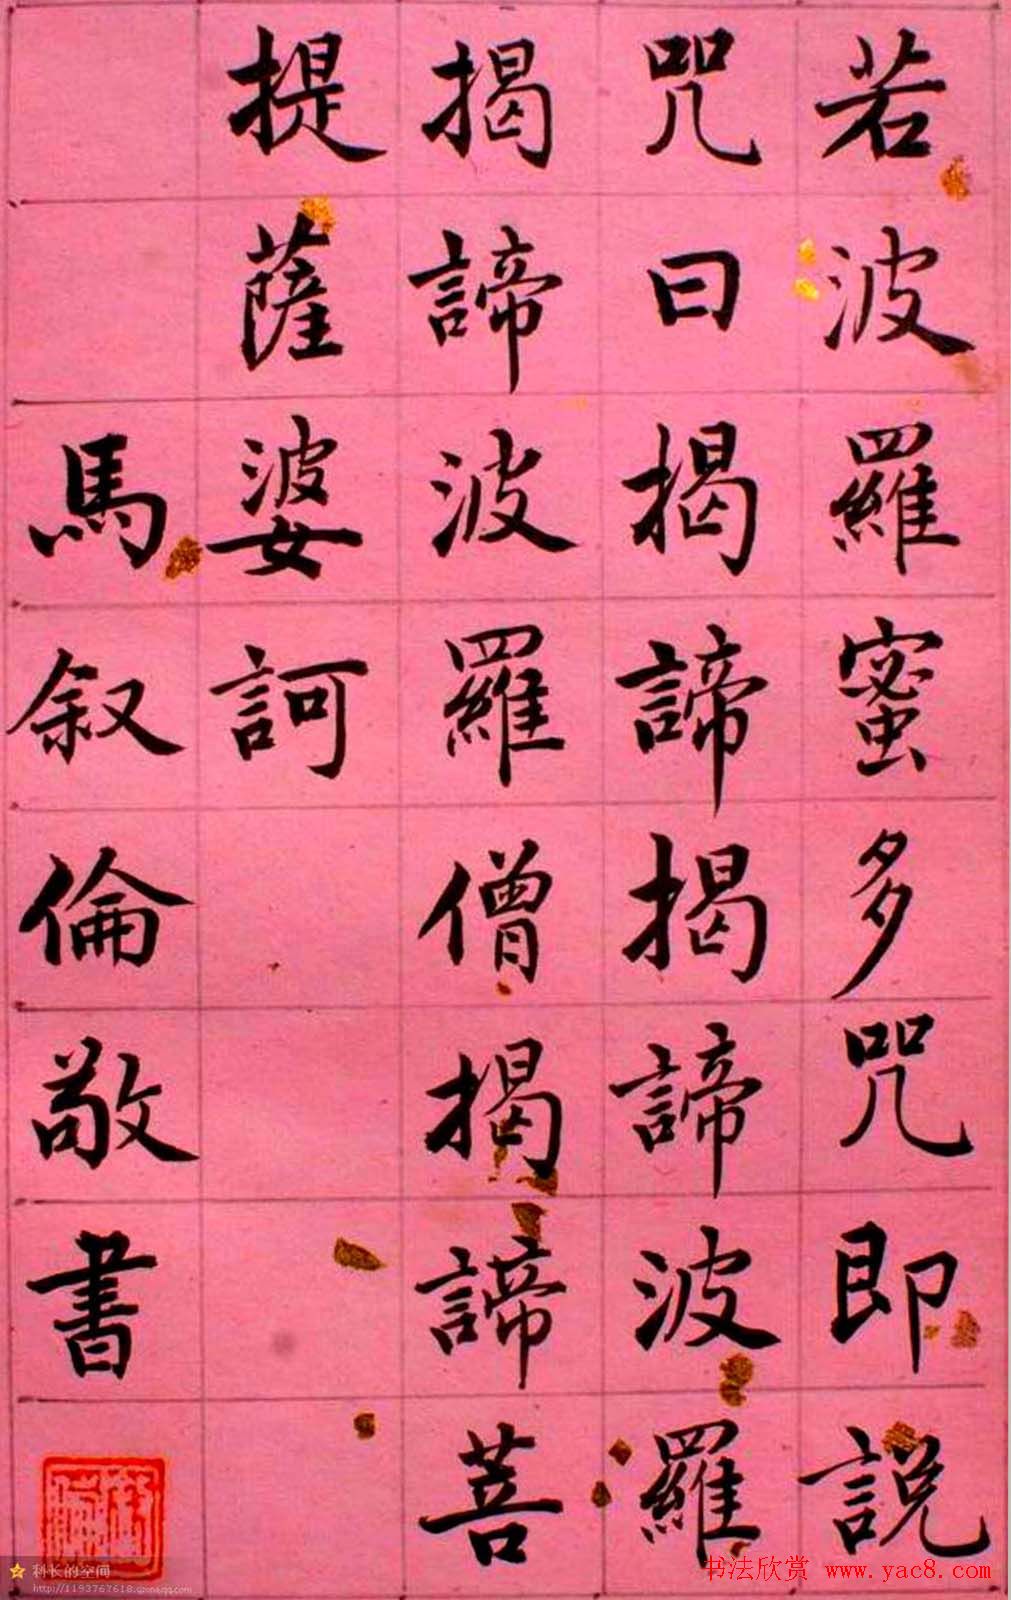 若波羅蜜多咒即説
咒曰揭諦揭諦波羅
揭諦波羅僧揭諦菩
提薩婆訶
馬叙倫敬書
科长的空间
http://1193767618.qzone.qq.com
书法欣赏 www.yac8.com